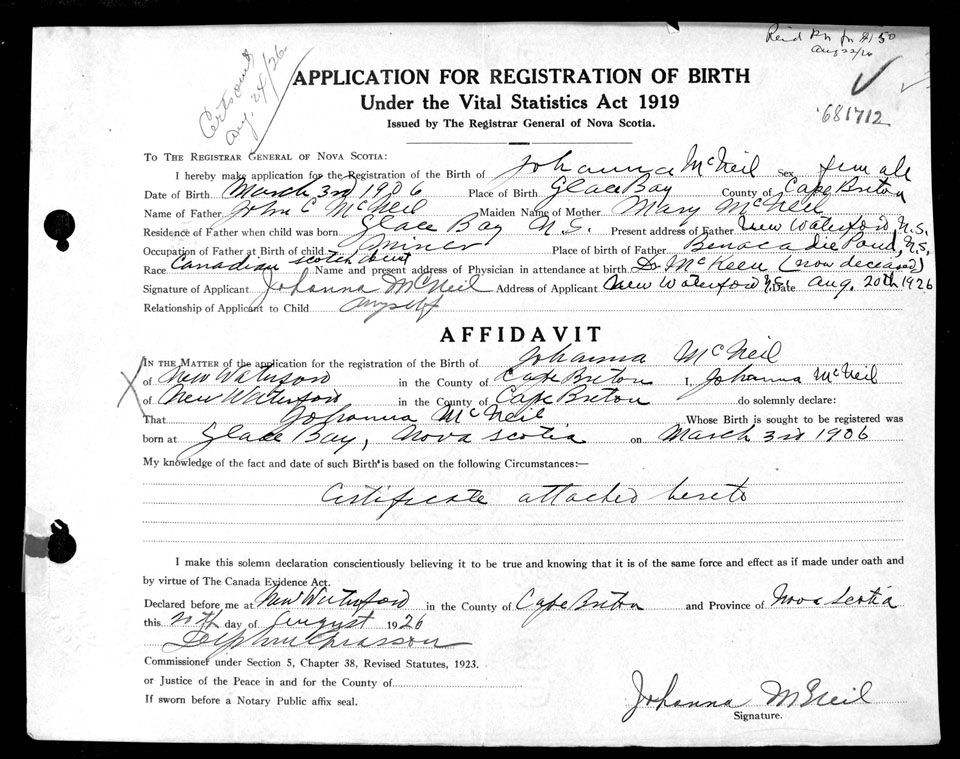 Aug 23/26
Aug. 24/26
681712
APPLICATION FOR REGISTRATION OF BIRTH
Under the Vital Statistics Act 1919
Issued by The Registrar General of Nova Scotia.
TO THE REGISTRAR GENERAL OF NOVA SCOTIA:
I hereby make application for the Registration of the Birth of Johanna McNeil Sex female
Date of Birth March 3rd 1906 Place of Birth Glace Bay County of Cape Breton
Name of Father John C McNeil Maiden Name of Mother Mary McNeil
Residence of Father when child was born Glace Bay N.S. Present address of Father New Waterford, N.S.
Occupation of Father at Birth of child miner Place of birth of Father Benacadie Pond, N.S.
Race Canadian scotch Name and present address of Physician in attendance at birth Dr McKeen (now deceased)
Signature of Applicant Johanna McNeil Address of Applicant New Waterford N.S. Date Aug. 20th 1926
Relationship of Applicant to Child myself
AFFIDAVIT
IN THE MATTER of the application for the registration of the Birth of Johanna McNeil
X of New Waterford in the County of Cape Breton I, Johanna McNeil
of New Waterford in the County of Cape Breton do solemnly declare:
That Johanna McNeil Whose Birth is sought to be registered was
born at Glace Bay, Nova Scotia on March 3rd 1906
My knowledge of the fact and date of such Birth is based on the following Circumstances:—
Certificate attached hereto
I make this solemn declaration conscientiously believing it to be true and knowing that it is of the same force and effect as if made under oath and
by virtue of The Canada Evidence Act.
Declared before me at New Waterford in the County of Cape Breton and Province of Nova Scotia
this 20th day of August 1926
Commissioner under Section 5, Chapter 38, Revised Statutes, 1923.
or Justice of the Peace in and for the County of
If sworn before a Notary Public affix seal.
Johanna McNeil
Signature.